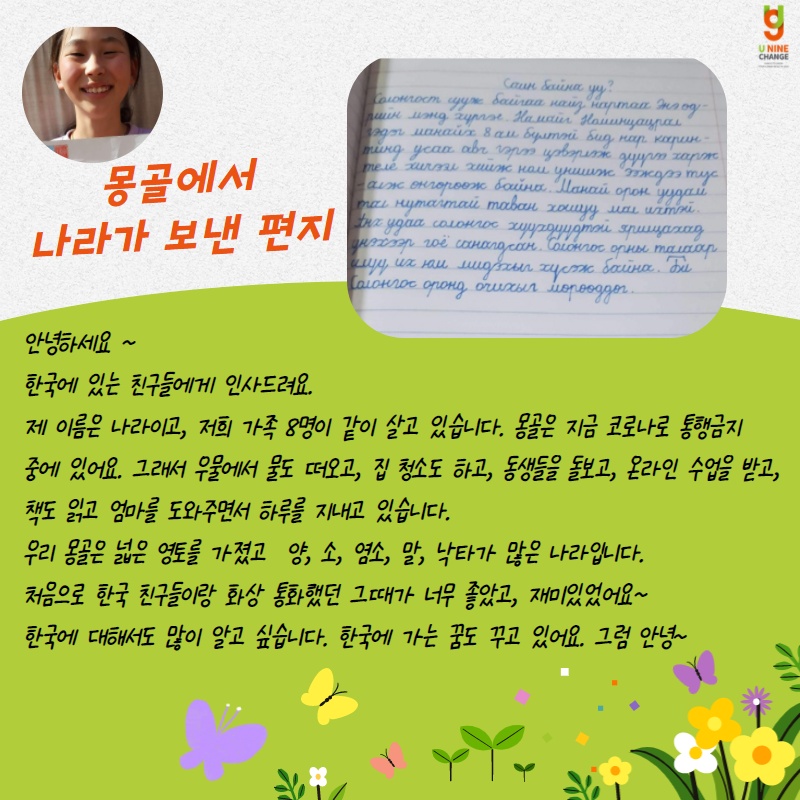 U NINE
CHANGE
몽골에서
나라가 보낸 편지
Саин байна уу?
Солонгост сууж байгаа найз нартаа Энэ өд-
рийн мэнд хүргэе. Намайг Номинцацрал
гэдэг манайх 8 ам бүлтэй бид нар карин-
тинд усаа авч гэрээ цэвэрлэж дүүгээ харж
теле хичээл хийж ном уншиж ээждээ тус
-алж өнгөрөөж байна. Манай орон уудам
тал нутагтай таван хошуу мал ихтэй.
Анх удаа солонгос хүүхдүүдтэй ярилцахад
үнэхээр гоё санагдсан. Солонгос орны талаар
илүү их юм мэдэхыг хүсэж байна. Би
Солонгос оронд очихыг мөрөөддөг.
안녕하세요 ~
한국에 있는 친구들에게 인사드려요.
제 이름은 나라이고, 저희 가족 8명이 같이 살고 있습니다. 몽골은 지금 코로나로 통행금지
중에 있어요. 그래서 우물에서 물도 떠오고, 집 청소도 하고, 동생들을 돌보고, 온라인 수업을 받고,
책도 읽고 엄마를 도와주면서 하루를 지내고 있습니다.
우리 몽골은 넓은 영토를 가졌고 양, 소, 염소, 말, 낙타가 많은 나라입니다.
처음으로 한국 친구들이랑 화상 통화했던 그때가 너무 좋았고, 재미있었어요~
한국에 대해서도 많이 알고 싶습니다. 한국에 가는 꿈도 꾸고 있어요. 그럼 안녕~